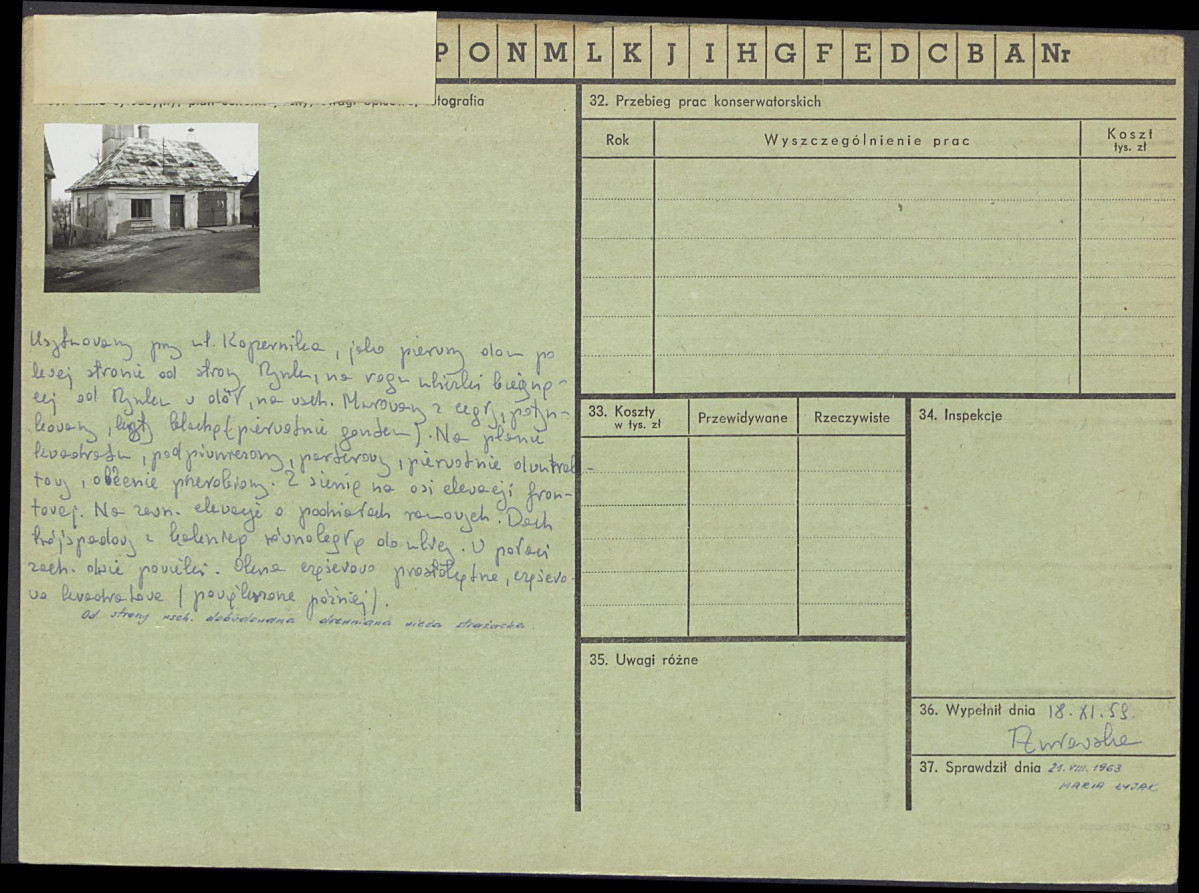 P O N M L K J I H G F E D C B A Nr
fotografia
Usytuowany przy ul. Kopernika, jako pierwszy dom po
lewej stronie od strony Rynku, na rogu uliczki biegną-
cej od Rynku w dół, na wsch. Murowany z cegły, potyn-
kowany, kryty blachą (pierwotnie gontem). Na planie
kwadratu, podpiwniczony, parterowy, pierwotnie dwutrak-
towy, obecnie przerobiony. Z sienią na osi elewacji fron-
towej. Na zewn. elewacje o podziałach ramowych. Dach
trójspadowy z kalenicą równoległą do ulicy. W połaci
zach. dwie powieki. Okna częściowo prostokątne, częścio-
wo kwadratowe (powiększone później).
Od strony wsch. dobudowana drewniana wieża strażacka.
32. Przebieg prac konserwatorskich
Rok
Wyszczególnienie prac
Koszt
tys. zł
33. Koszty
w tys. zł
Przewidywane
Rzeczywiste
34. Inspekcje
35. Uwagi różne
36. Wypełnił dnia 18.XI.59.
37. Sprawdził dnia 21.VIII.1963
MARIA ŁYJAK